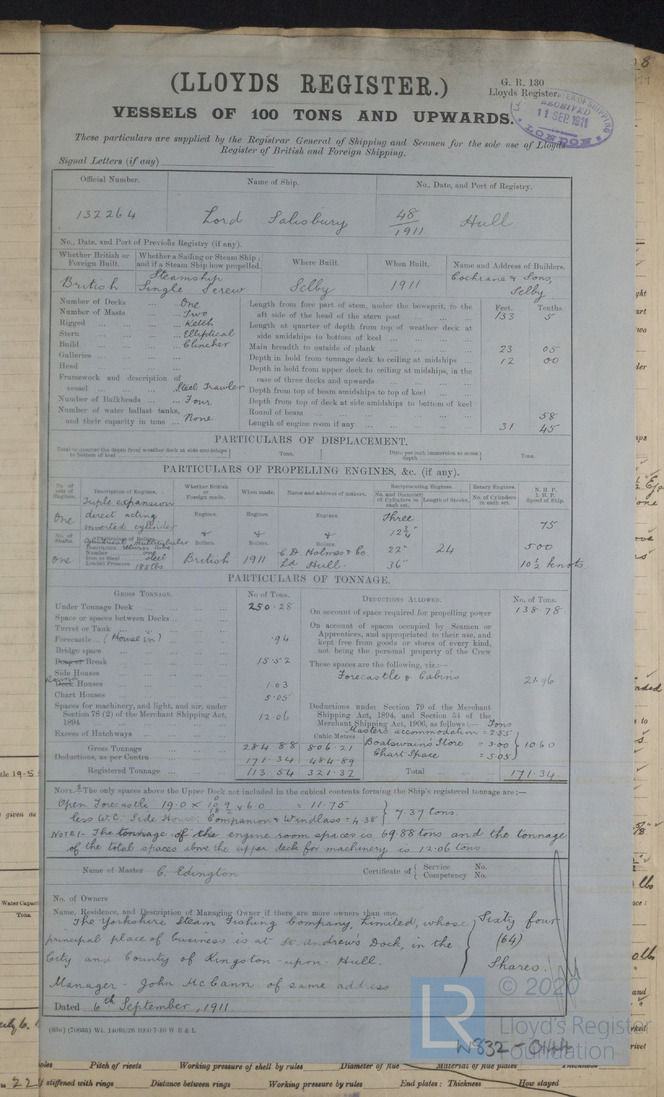 (LLOYDS REGISTER.)
G. R. 130
Lloyds Register.
RECEIVED
11 SEP. 1911
LONDON
VESSELS OF 100 TONS AND UPWARDS.
These particulars are supplied by the Registrar General of Shipping and Seamen for the sole use of Lloyds
Register of British and Foreign Shipping.
Signal Letters (if any)
Official Number. Name of Ship. No., Date, and Port of Registry.
132264 Lord Salisbury 48/1911 Hull
No., Date, and Port of Previous Registry (if any).
Whether British or Foreign Built. Whether a Sailing or Steam Ship; and if a Steam Ship how propelled. Where Built. When Built. Name and Address of Builders.
British Steamship Single Screw Selby 1911 Cochrane & Sons, Selby
Number of Decks ... One
Number of Masts ... Two
Rigged ... Ketch
Stern ... Elliptical
Build ... Clincher
Galleries
Head
Framework and description of vessel ... Steel Trawler
Number of Bulkheads ... Four
Number of water ballast tanks, and their capacity in tons ... None
Feet. Tenths.
Length from fore part of stem, under the bowsprit, to the aft side of the head of the stern post 133 5
Length at quarter of depth from top of weather deck at side amidships to bottom of keel
Main breadth to outside of plank 23 05
Depth in hold from tonnage deck to ceiling at midships 12 00
Depth in hold from upper deck to ceiling at midships, in the case of three decks and upwards
Depth from top of beam amidships to top of keel
Depth from top of deck at side amidships to bottom of keel
Round of beam 58
Length of engine room if any 31 45
PARTICULARS OF DISPLACEMENT.
Total to quarter the depth from weather deck at side amidships to bottom of keel Tons. Ditto per inch immersion at same depth Tons.
PARTICULARS OF PROPELLING ENGINES, &c. (if any).
No. of sets of Engines. Description of Engines. Whether British or Foreign made. When made. Name and address of makers. Reciprocating Engines. Rotary Engines. N.H.P. I.H.P. Speed of Ship.
No. and Diameter of Cylinders in each set. Length of Stroke. No. of Cylinders in each set.
One Triple expansion direct acting inverted cylinder Engines. Engines. Engines. Three 12¾" 75
No. of Shafts. Description of Boilers. Number Iron or Steel Loaded Pressure & Boilers. & Boilers. & Boilers.
one Steel 185 lbs British 1911 C D Holmes & Co. Ld Hull. 22" 36" 24 500 10½ knots
PARTICULARS OF TONNAGE.
GROSS TONNAGE. No of Tons. DEDUCTIONS ALLOWED. No. of Tons.
Under Tonnage Deck 250.28
Space or spaces between Decks
Turret or Trunk
Forecastle (House in) .94
Bridge space
Break 15.52
Side Houses
Deck Houses 1.03
Chart Houses 5.05
Spaces for machinery, and light, and air, under Section 78 (2) of the Merchant Shipping Act, 1894 12.06
Excess of Hatchways Cubic Metres
Gross Tonnage 284.88 806.21
Deductions, as per Contra 171.34 484.89
Registered Tonnage 113.54 321.32
On account of space required for propelling power 138.78
On account of spaces occupied by Seamen or Apprentices, and appropriated to their use, and kept free from goods or stores of every kind, not being the personal property of the Crew
These spaces are the following, viz.:—
Forecastle & Cabins 21.96
Deductions under Section 79 of the Merchant Shipping Act, 1894, and Section 54 of the Merchant Shipping Act, 1906, as follows:— Tons
Master's accommodation = 2.55
Boatswain's Store = 3.00
Chart Space = 5.05
10.60
Total 171.34
NOTE.—The only spaces above the Upper Deck not included in the cubical contents forming the Ship's registered tonnage are:—
Open Forecastle 19.0 × × 6.0 = 11.75
less W.C. Side House, Companion & Windlass = 4.38 } 7.37 tons.
NOTE 1.- The tonnage of the engine room spaces is 69.88 tons and the tonnage
of the total spaces above the upper deck for machinery is 12.06 tons.
Name of Master C. Edington Certificate of { Service No. Competency No.
No. of Owners
Name, Residence, and Description of Managing Owner if there are more owners than one.
The Yorkshire Steam Fishing Company, Limited, whose
principal place of business is at St. Andrew's Dock, in the
City and County of Kingston-upon-Hull.
Sixty four
(64)
Shares.
Manager - John McCann of same address
Dated 6th September, 1911
© 2020
LR
Lloyd's Register
Foundation
W832-0144
Pitch of rivets Working pressure of shell by rules Diameter of flue Material of flue plates Thickness
stiffened with rings Distance between rings Working pressure by rules End plates: Thickness How stayed